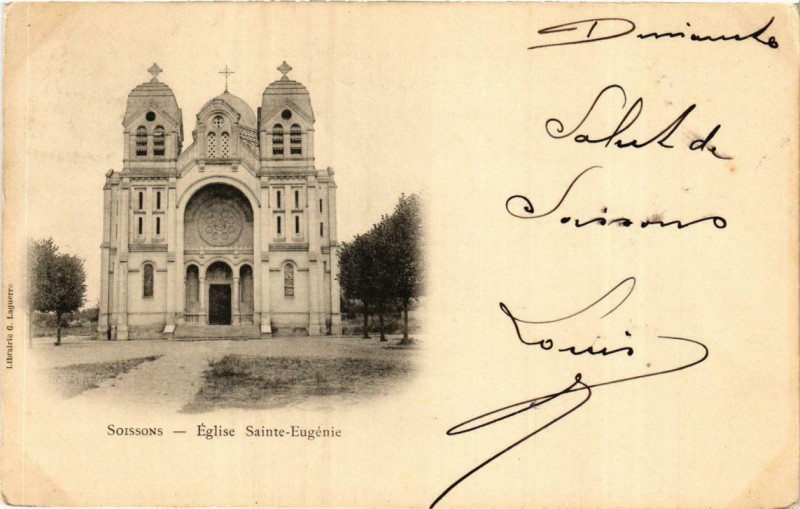 Dimanche
Salut de
Soissons
Louis
SOISSONS — Église Sainte-Eugénie
Librairie G. Laguerre